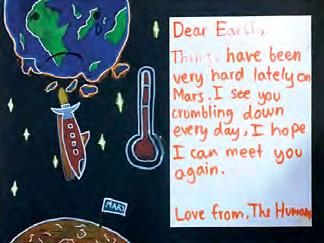 Dear Earth,
Things have been
very hard lately on
Mars. I see you
crumbling down
every day, I hope
I can meet you
again.
Love from, The Humans
MARS